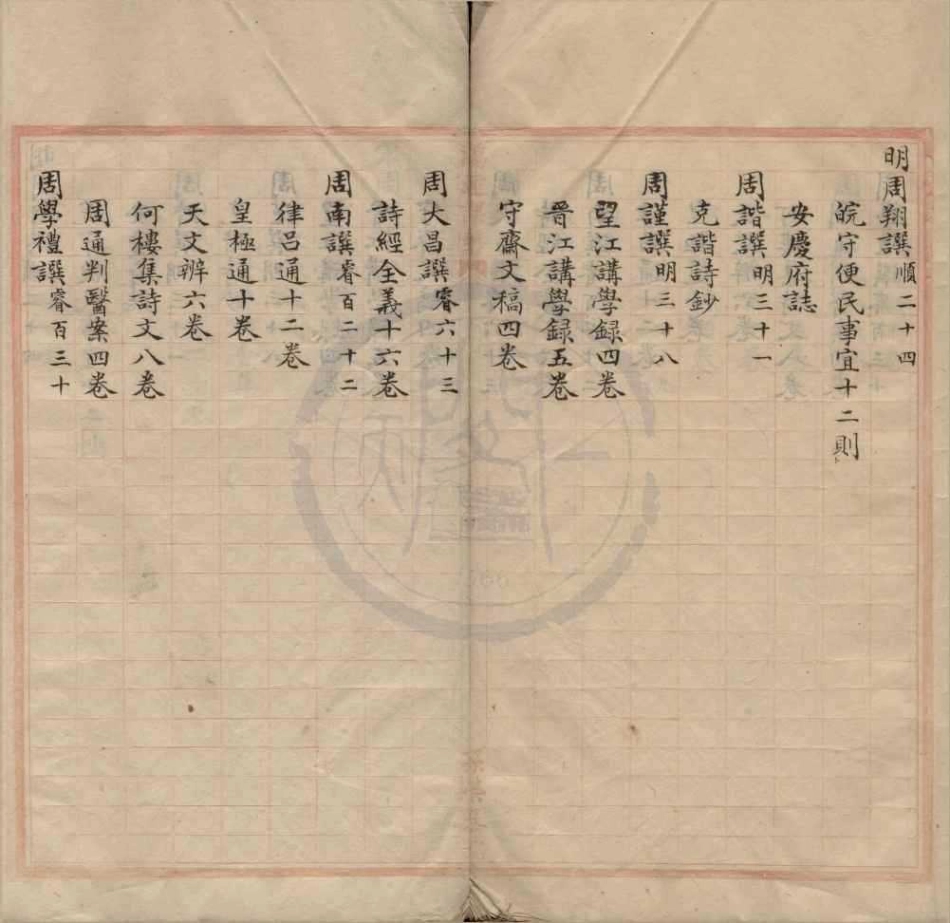 明周翔譔順二十四
皖守便民事宜十二則
安慶府誌
周諧譔明三十一
克諧詩鈔
周謹譔明三十八
望江講學録四卷
晉江講學録五卷
守齋文稿四卷
周大昌譔睿六十三
詩經全義十六卷
周南譔睿百二十二
律吕通十二卷
皇極通十卷
天文辨六卷
何樓集詩文八卷
周通判醫案四卷
周學禮譔睿百三十